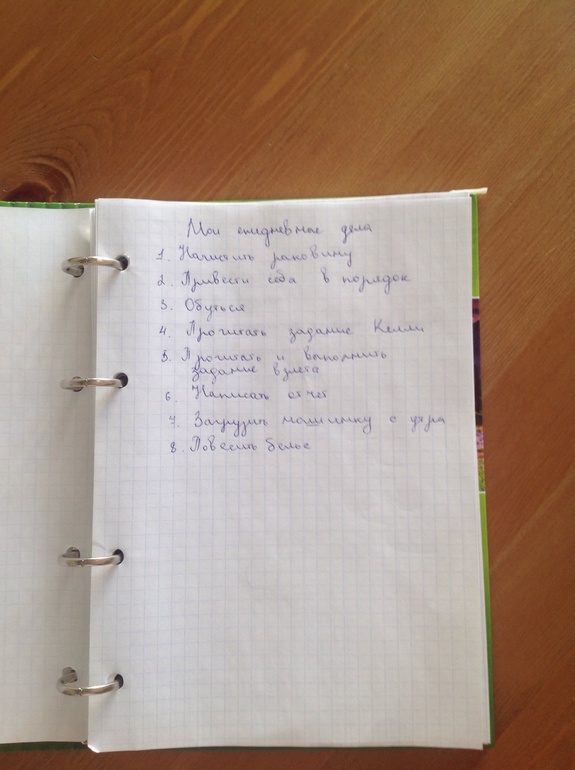 Мои ежедневные дела
1. Начистить раковину
2. Привести себя в порядок
3. Обуться
4. Прочитать задание Келли
5. Прочитать и выполнить
задание взлёта
6. Написать отчет
7. Загрузить машинку с утра
8. Повесить белье